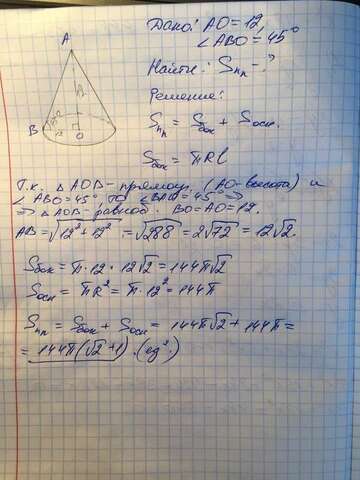 Дано: AO=12,
∠ABO=45°
Найти: Sпп - ?
Решение:
Sпп = Sбок + Sосн.
Sбок = πRl
A
12
B
45°
O
Т.к. △AOB - прямоуг. (AO-высота) и
∠ABO=45°, то ∠BAO=45° ⇒
⇒ △AOB - равноб. BO=AO=12.
AB=√12²+12² = √288 = 2√72 = 12√2.
Sбок = π·12·12√2 = 144π√2
Sосн = πR² = π·12² = 144π
Sпп = Sбок + Sосн = 144π√2 + 144π =
= 144π(√2+1). (ед².)